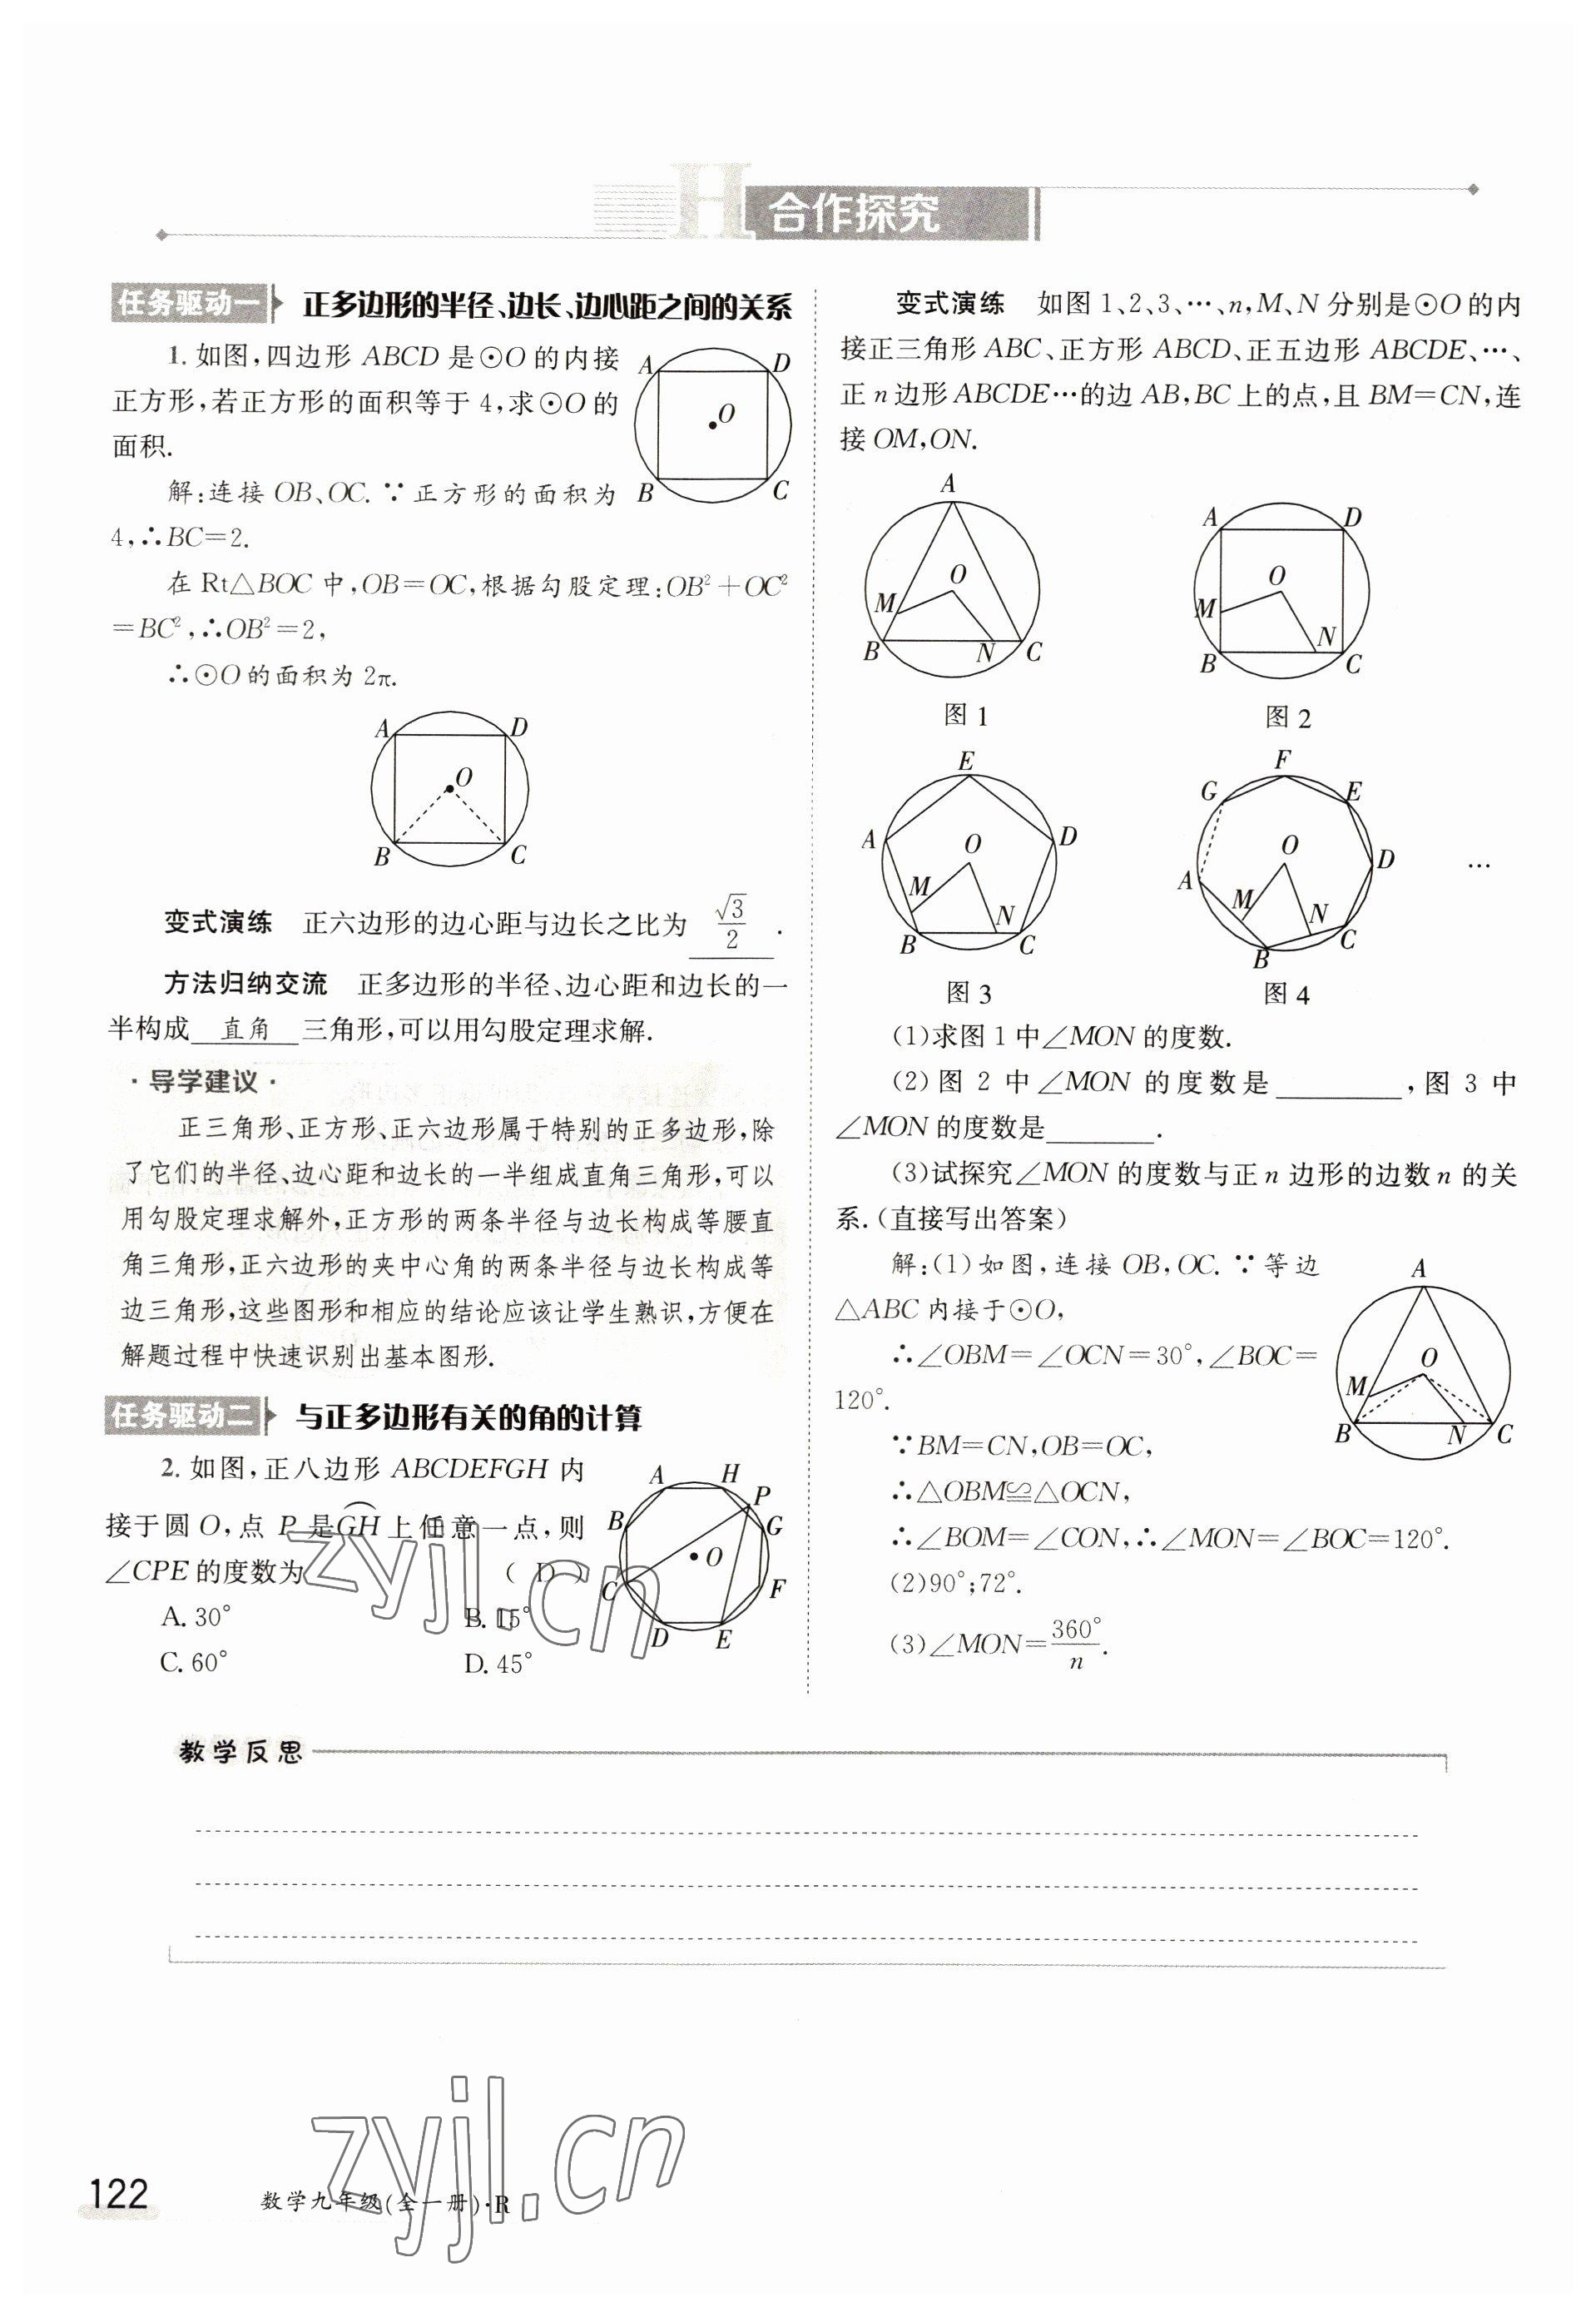 H 合作探究
任务驱动一 正多边形的半径、边长、边心距之间的关系
1. 如图,四边形 ABCD 是⊙O 的内接
正方形,若正方形的面积等于 4,求⊙O 的
面积.
A D
O
B C
解:连接 OB、OC. ∵ 正方形的面积为
4,∴BC=2.
在 Rt△BOC 中,OB=OC,根据勾股定理:OB²+OC²
=BC²,∴OB²=2,
∴⊙O 的面积为 2π.
A D
O
B C
变式演练 正六边形的边心距与边长之比为 √3/2 .
方法归纳交流 正多边形的半径、边心距和边长的一
半构成 直角 三角形,可以用勾股定理求解.
·导学建议·
正三角形、正方形、正六边形属于特别的正多边形,除
了它们的半径、边心距和边长的一半组成直角三角形,可以
用勾股定理求解外,正方形的两条半径与边长构成等腰直
角三角形,正六边形的夹中心角的两条半径与边长构成等
边三角形,这些图形和相应的结论应该让学生熟识,方便在
解题过程中快速识别出基本图形.
任务驱动二 与正多边形有关的角的计算
2. 如图,正八边形 ABCDEFGH 内
接于圆 O,点 P 是GH上任意一点,则
∠CPE 的度数为 ( D )
A. 30° B. 15°
C. 60° D. 45°
A H P
B G
O
C F
D E
变式演练 如图 1、2、3、…、n,M、N 分别是⊙O 的内
接正三角形 ABC、正方形 ABCD、正五边形 ABCDE、…、
正 n 边形 ABCDE…的边 AB,BC 上的点,且 BM=CN,连
接 OM,ON.
A
O
M
B N C
图 1
A D
O
M
N
B C
图 2
E
A D
O
M
N
B C
图 3
F
G E
O D
A M
N
B C
图 4
…
(1)求图 1 中∠MON 的度数.
(2)图 2 中∠MON 的度数是________,图 3 中
∠MON 的度数是________.
(3)试探究∠MON 的度数与正 n 边形的边数 n 的关
系.(直接写出答案)
解:(1)如图,连接 OB,OC. ∵等边
△ABC 内接于⊙O,
∴∠OBM=∠OCN=30°,∠BOC=
120°.
∵BM=CN,OB=OC,
∴△OBM≌△OCN,
∴∠BOM=∠CON,∴∠MON=∠BOC=120°.
(2)90°;72°.
(3)∠MON=360°/n.
A
O
M
B N C
教学反思
zyjl.cn
zyjl.cn
122
数学九年级(全一册)·R